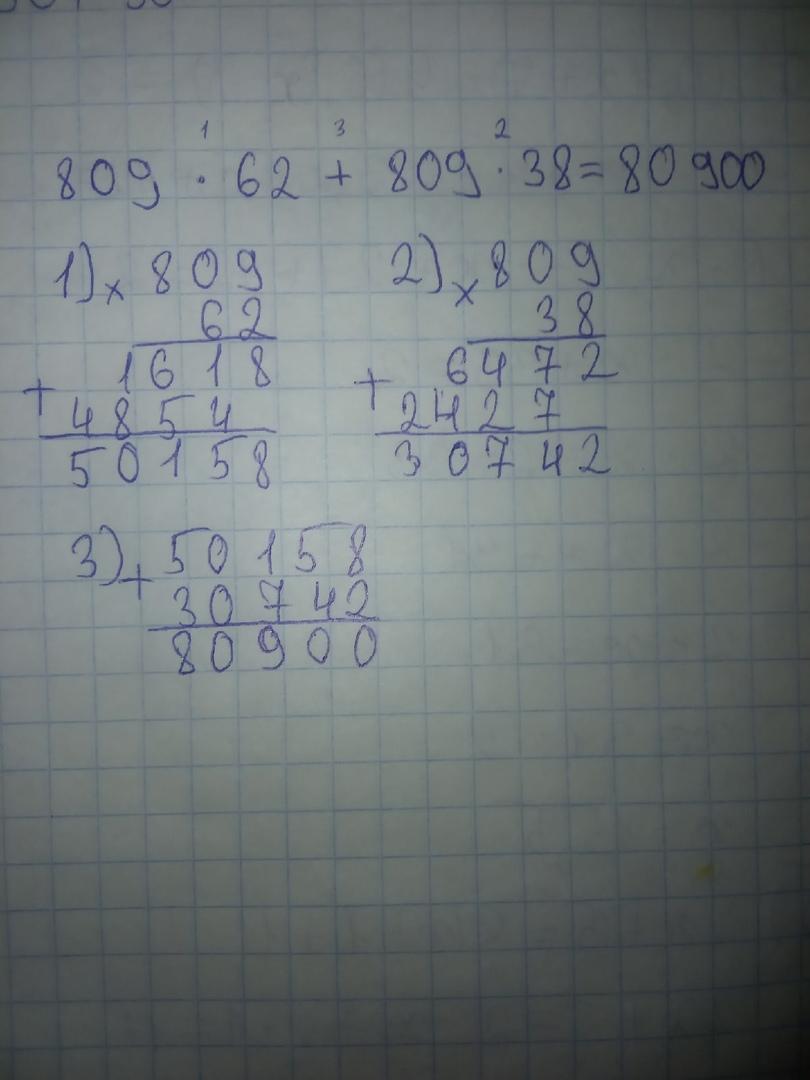 1 3 2
809 · 62 + 809 · 38 = 80 900
1) × 809
62
+ 1618
4854
50158
2) × 809
38
+ 6472
2427
30742
3) + 50158
30742
80900